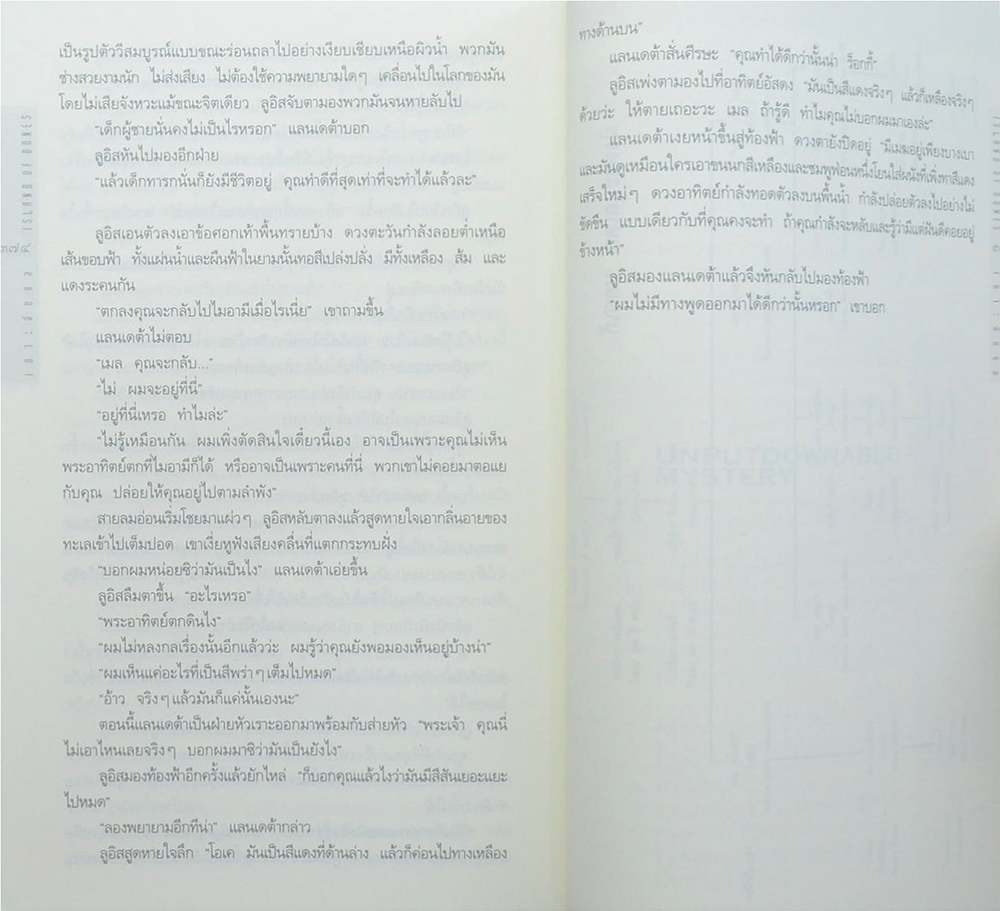 เป็นรูปตัววีสมบูรณ์แบบขณะร่อนถลาไปอย่างเงียบเชียบเหนือผิวน้ำ พวกมัน
ช่างสวยงามนัก ไม่ส่งเสียง ไม่ต้องใช้ความพยายามใดๆ เคลื่อนไปในโลกของมัน
โดยไม่เสียจังหวะแม้ขณะจิตเดียว ลูอิสจับตามองพวกมันจนหายลับไป
“เด็กผู้ชายนั่นคงไม่เป็นไรหรอก” แลนเดต้าบอก
ลูอิสหันไปมองอีกฝ่าย
“แล้วเด็กทารกนั่นก็ยังมีชีวิตอยู่ คุณทำดีที่สุดเท่าที่จะทำได้แล้วละ”
ลูอิสเอนตัวลงเอาข้อศอกเท้าพื้นทรายบ้าง ดวงตะวันกำลังลอยต่ำเหนือ
เส้นขอบฟ้า ทั้งแผ่นน้ำและผืนฟ้าในยามนั้นทอสีเปล่งปลั่ง มีทั้งเหลือง ส้ม และ
แดงระคนกัน
“ตกลงคุณจะกลับไปไมอามีเมื่อไรเนี่ย” เขาถามขึ้น
แลนเดต้าไม่ตอบ
“เมล คุณจะกลับ...”
“ไม่ ผมจะอยู่ที่นี่”
“อยู่ที่นี่เหรอ ทำไมล่ะ”
“ไม่รู้เหมือนกัน ผมเพิ่งตัดสินใจเดี๋ยวนี้เอง อาจเป็นเพราะคุณไม่เห็น
พระอาทิตย์ตกที่ไมอามีก็ได้ หรืออาจเป็นเพราะคนที่นี่ พวกเขาไม่คอยมาตอแย
กับคุณ ปล่อยให้คุณอยู่ไปตามลำพัง”
สายลมอ่อนเริ่มโชยมาแผ่วๆ ลูอิสหลับตาลงแล้วสูดหายใจเอากลิ่นอายของ
ทะเลเข้าไปเต็มปอด เขาเงี่ยหูฟังเสียงคลื่นที่แตกกระทบฝั่ง
“บอกผมหน่อยซิว่ามันเป็นไง” แลนเดต้าเอ่ยขึ้น
ลูอิสลืมตาขึ้น “อะไรเหรอ”
“พระอาทิตย์ตกดินไง”
“ผมไม่หลงกลเรื่องนั้นอีกแล้วว่ะ ผมรู้ว่าคุณยังพอมองเห็นอยู่บ้างน่า”
“ผมเห็นแค่อะไรที่เป็นสีพร่าๆ เต็มไปหมด”
“อ้าว จริงๆ แล้วมันก็แค่นั้นเองนะ”
ตอนนี้แลนเดต้าเป็นฝ่ายหัวเราะออกมาพร้อมกับส่ายหัว “พระเจ้า คุณนี่
ไม่เอาไหนเลยจริงๆ บอกผมมาซิว่ามันเป็นยังไง”
ลูอิสมองท้องฟ้าอีกครั้งแล้วยักไหล่ “ก็บอกคุณแล้วไงว่ามันมีสีสันเยอะแยะ
ไปหมด”
“ลองพยายามอีกทีน่า” แลนเดต้ากล่าว
ลูอิสสูดหายใจลึก “โอเค มันเป็นสีแดงที่ด้านล่าง แล้วก็ค่อนไปทางเหลือง
๓๗๔ ISLAND OF BONES
ทางด้านบน”
แลนเดต้าสั่นศีรษะ “คุณทำได้ดีกว่านั้นน่า ร็อกกี้”
ลูอิสเพ่งตามองไปที่อาทิตย์อัสดง “มันเป็นสีแดงจริงๆ แล้วก็เหลืองจริงๆ
ด้วยว่ะ ให้ตายเถอะวะ เมล ถ้ารู้ดี ทำไมคุณไม่บอกผมมาเองล่ะ”
แลนเดต้าเงยหน้าขึ้นสู่ท้องฟ้า ดวงตายังปิดอยู่ “มีเมฆอยู่เพียงบางเบา
และมันดูเหมือนใครเอาขนนกสีเหลืองและชมพูฟ่อนหนึ่งโยนใส่ผนังที่เพิ่งทาสีแดง
เสร็จใหม่ๆ ดวงอาทิตย์กำลังทอดตัวลงบนพื้นน้ำ กำลังปล่อยตัวลงไปอย่างไม่
ขัดขืน แบบเดียวกับที่คุณคงจะทำ ถ้าคุณกำลังจะหลับและรู้ว่ามีแต่ฝันดีคอยอยู่
ข้างหน้า”
ลูอิสมองแลนเดต้าแล้วจึงหันกลับไปมองท้องฟ้า
“ผมไม่มีทางพูดออกมาได้ดีกว่านั้นหรอก” เขาบอก